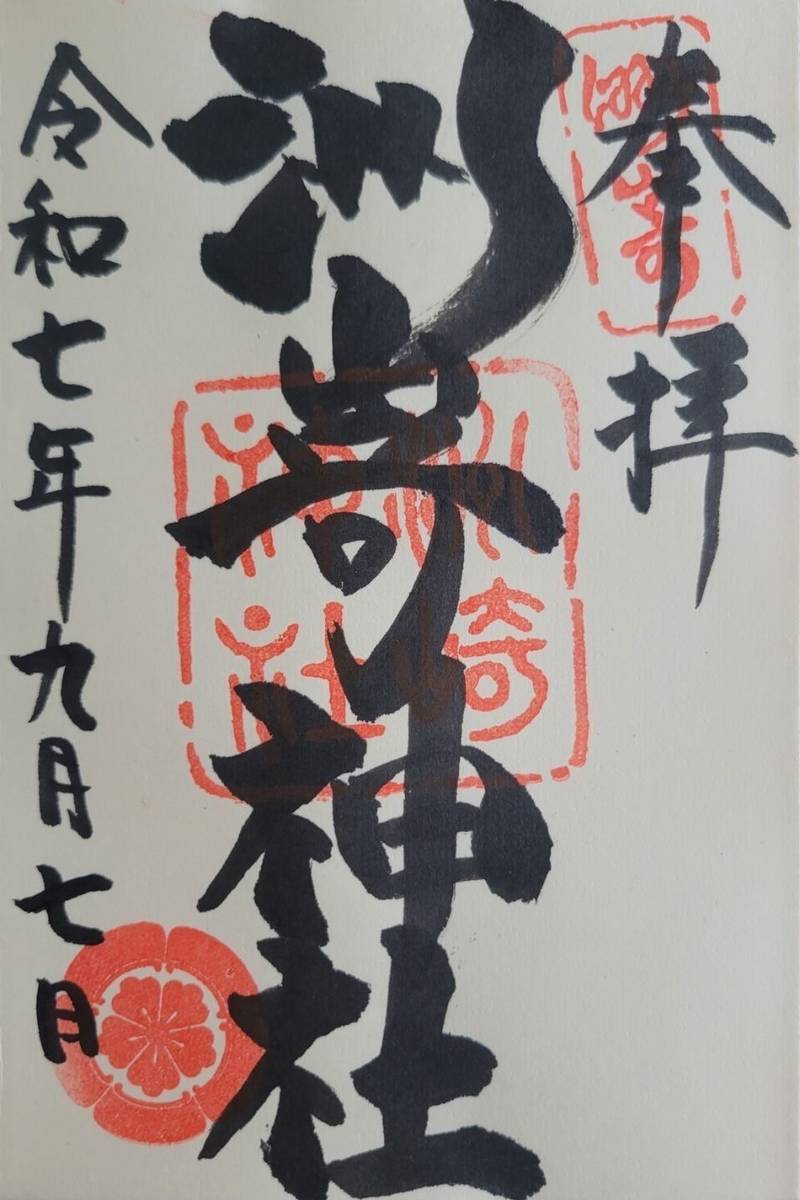 奉拝
洲崎神社
令和七年九月七日
洲崎
神社